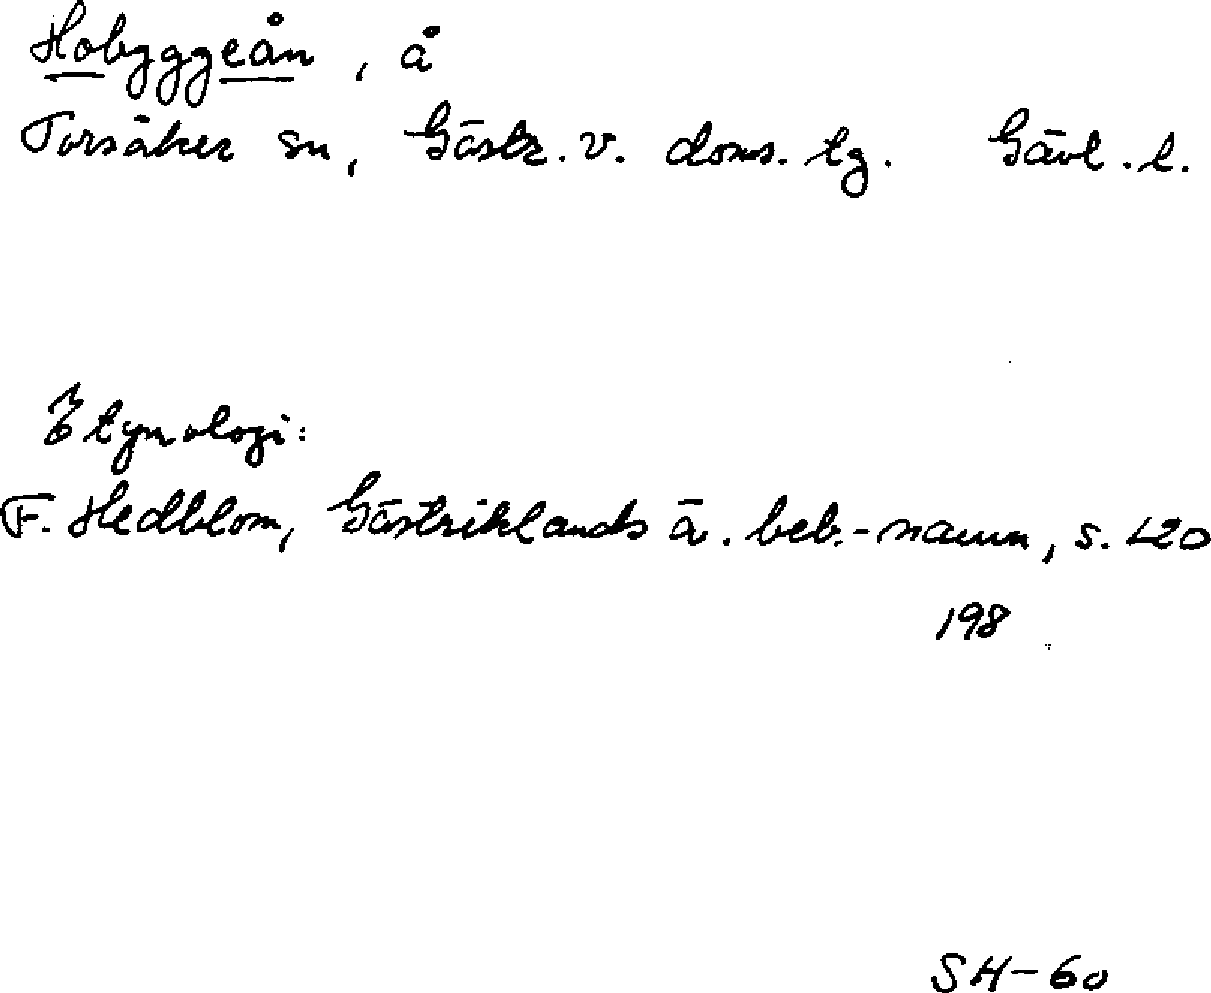 Hobyggeån, å
Torsåker sn, Gästr. v. doms. tg. Gävl. l.
Etymologi:
F. Hedblom, Gästriklands ä. beb.-namn, s. 120
198
SH-60